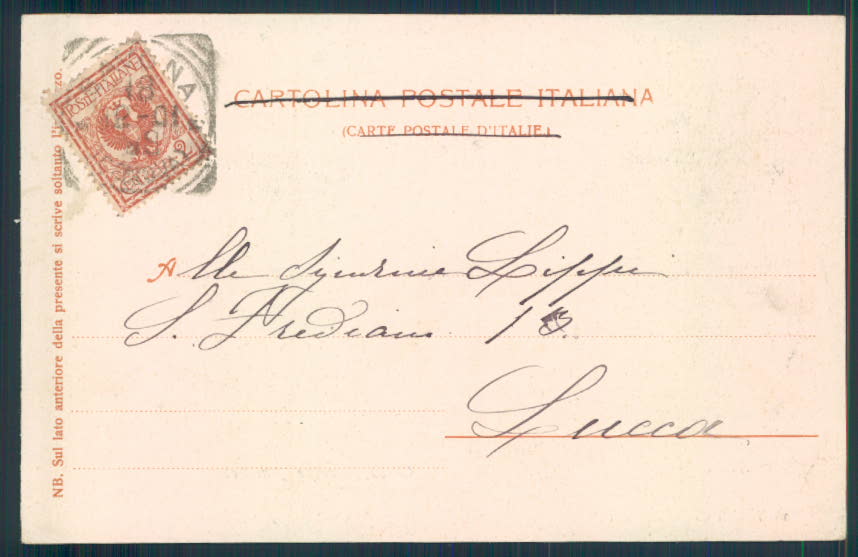 CARTOLINA POSTALE ITALIANA
(CARTE POSTALE D'ITALIE)
POSTE·ITALIANE
CENT. 2
NA
Alle Signorine Lippi
S. Frediano 13
Lucca
NB. Sul lato anteriore della presente si scrive soltanto l'i zzo.